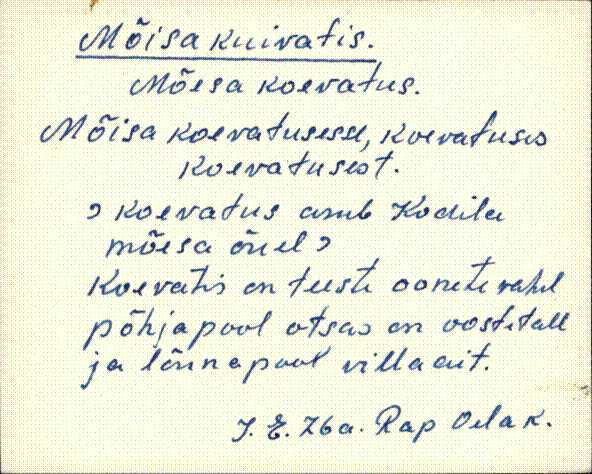 Mõisa kuivatis.
Mõesa koevatus.
Mõisa koevatusesse, koevatuses
koevatusest.
koevatus asub Kodila
mõesa õuel
Koevatis on teeste oonete vahel
põhjapool otsas on oostetall
ja lõunapool villaait.
J. E. 76a. Rap Oela k.